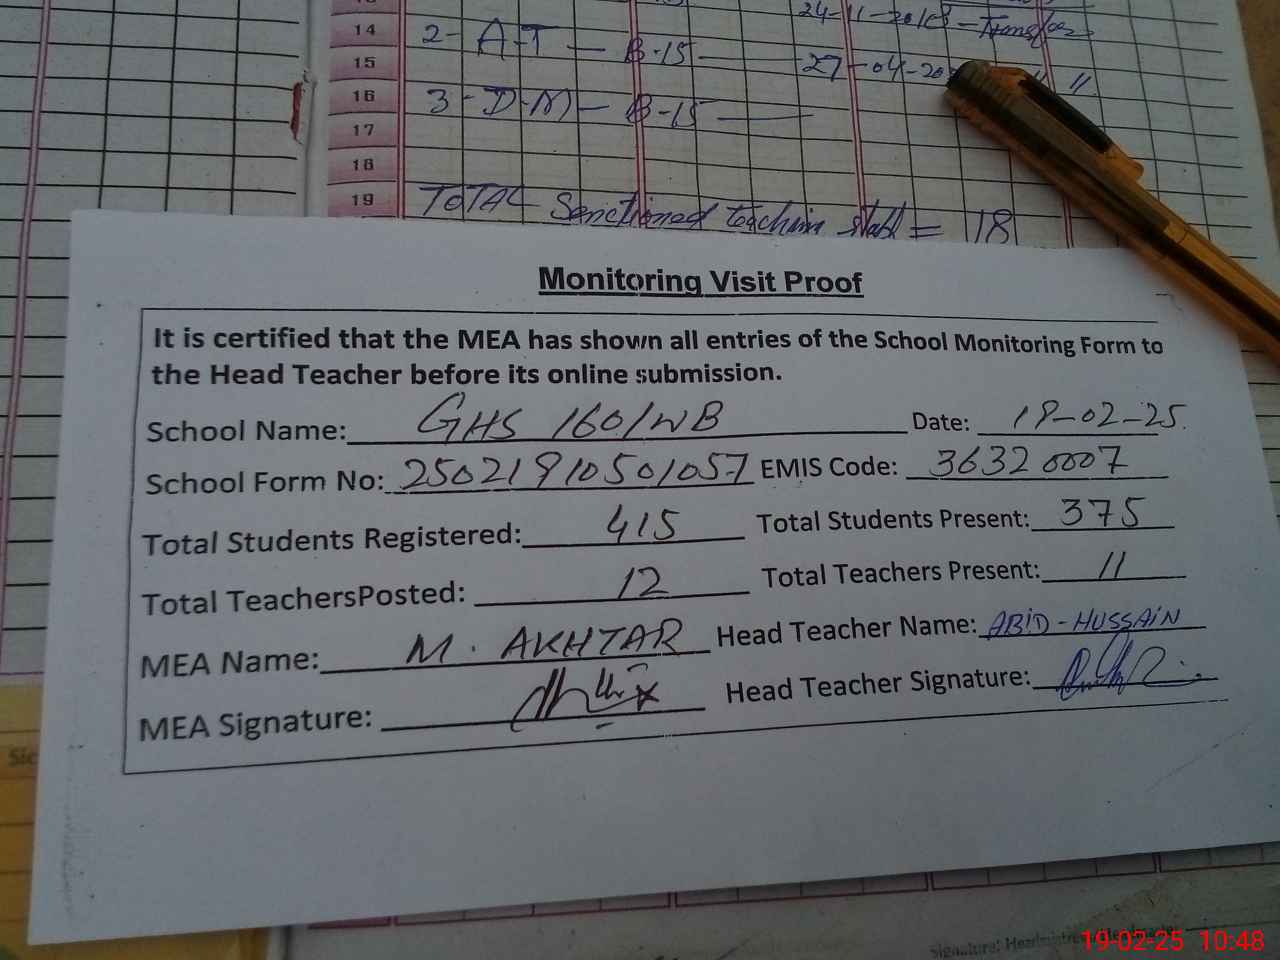 14 2- A-T — B-15 — 27-04-20 " "
24-11-2018 - Transfer
15
16 3- D-M — B-15 —
17
18
19 TOTAL Sanctioned teaching staff = 18
Monitoring Visit Proof
It is certified that the MEA has shown all entries of the School Monitoring Form to
the Head Teacher before its online submission.
School Name: GHS 160/WB Date: 19-02-25
School Form No: 25021910501057 EMIS Code: 36320007
Total Students Registered: 415 Total Students Present: 375
Total TeachersPosted: 12 Total Teachers Present: 11
MEA Name: M. AKHTAR Head Teacher Name: ABID-HUSSAIN
MEA Signature: Head Teacher Signature:
19-02-25 10:48